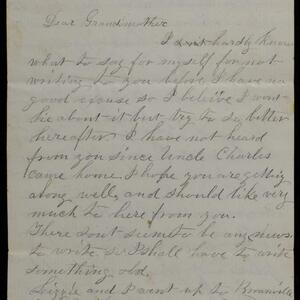 Dear Grandmother
I don't hardly know
what to say for myself for not
writing to you before I have no
good excuse so I beleive I wont
lie about it but try to do better
hereafter I have not heard
from you since Uncle Charles
came home. I hope you are getting
along well, and should like very
much to here from you.
There dont seem to be any news
to write so I shall have to write
something old.
Lizzie and I went up to